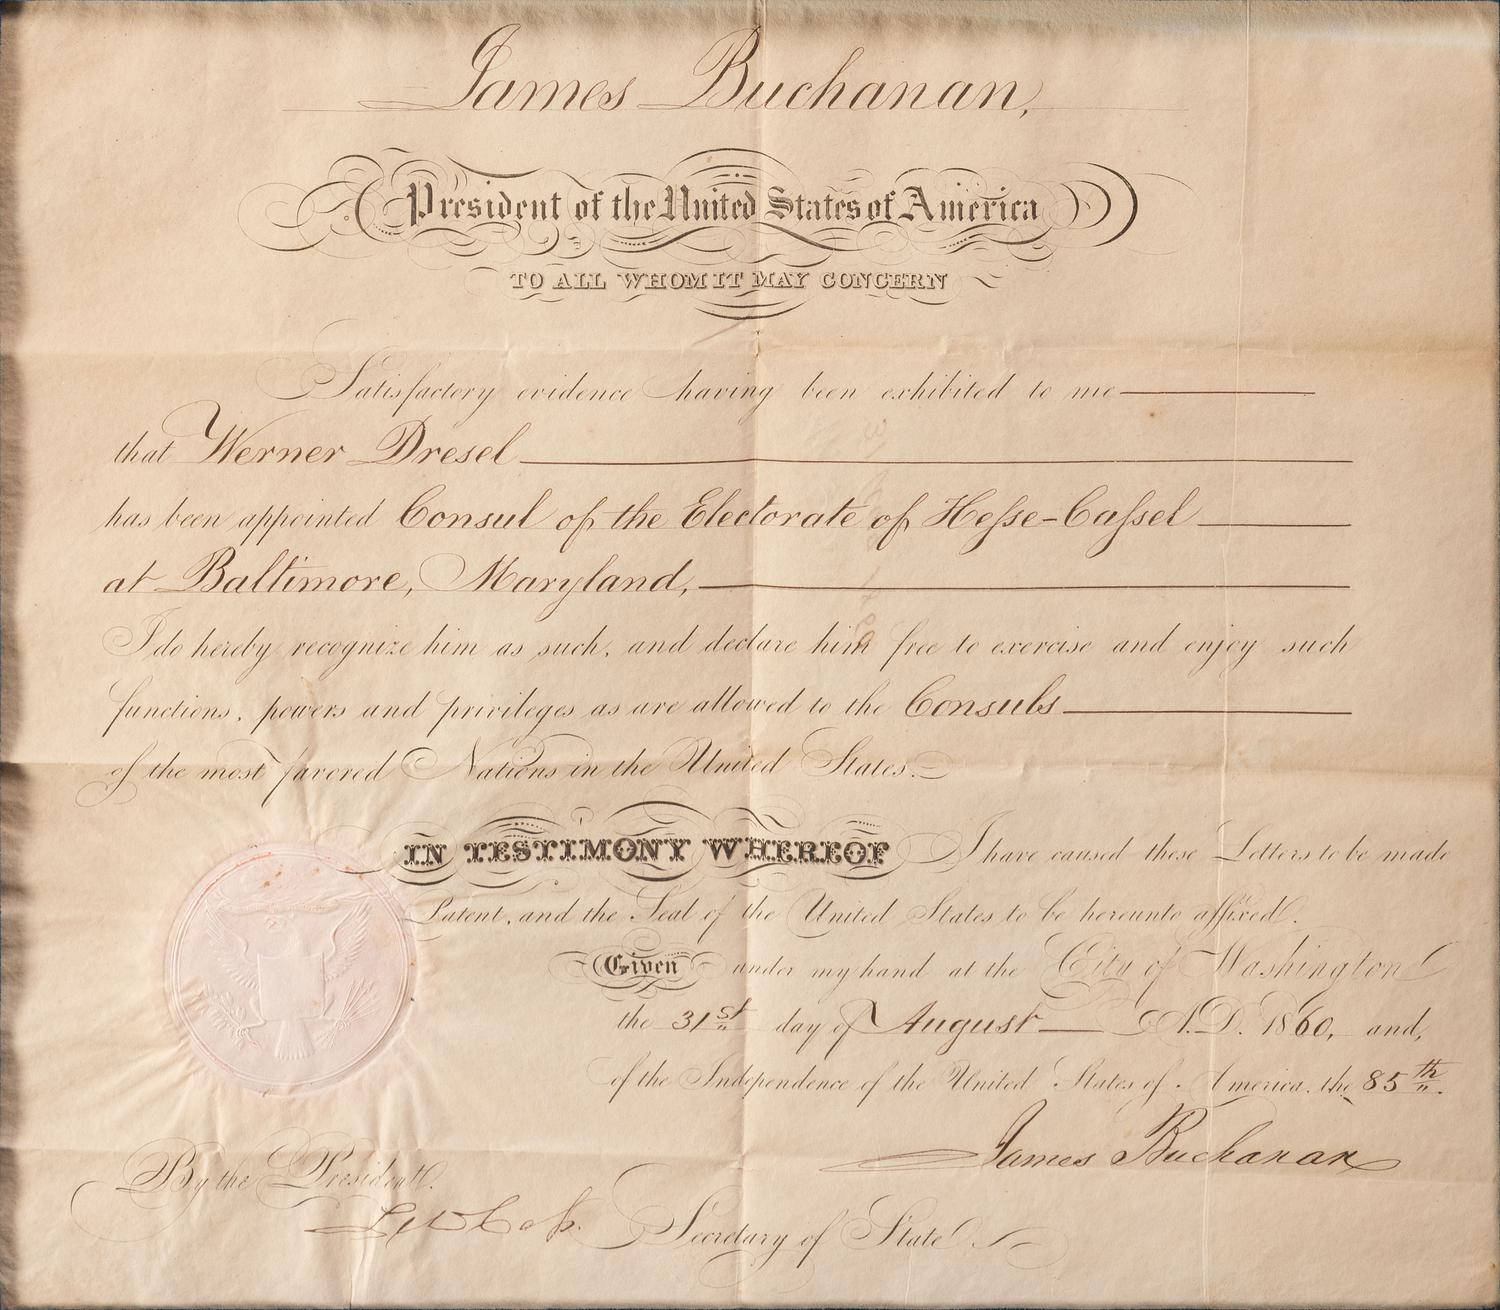 James Buchanan,
President of the United States of America
TO ALL WHOM IT MAY CONCERN
Satisfactory evidence having been exhibited to me
that Werner Dresel
has been appointed Consul of the Electorate of Heſse-Caſsel
at Baltimore, Maryland,
I do hereby recognize him as such, and declare him free to exercise and enjoy such
functions, powers and privileges as are allowed to the Consuls
of the most favored Nations in the United States.
IN TESTIMONY WHEREOF I have caused these Letters to be made
Patent, and the Seal of the United States to be hereunto affixed.
Given under my hand at the City of Washington
the 31st day of August A.D. 1860, and,
of the Independence of the United States of America, the 85th.
James Buchanan
By the President.
Lew Caſs. Secretary of State.